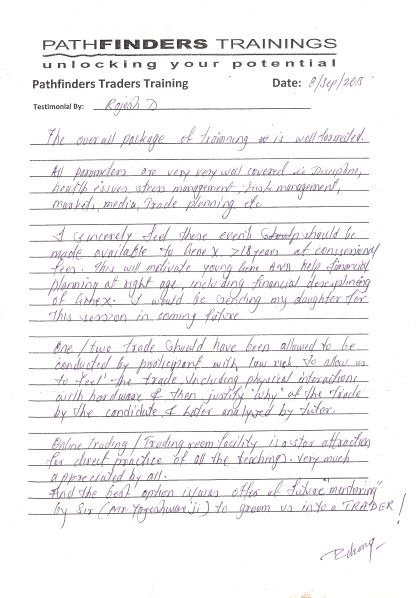 PATHFINDERS TRAININGS
unlocking your potential
Pathfinders Traders Training Date: 8/Sep/2015
Testimonial By: Rajesh D
The overall package of trainning is well formated.
All parameters are very very well covered i.e Discipline,
health issues, stress management, risk management,
market, media, Trade planning etc
I sincerely feel these events should be
made available to Gene X, >18 years at concessional
fees. This will motivate young Gene and help financial
planning at right age, including financial desciplining
of Gene X. I would be sending my daughter for
this session in coming future
One / two trade should have been allowed to be
conducted by participant with low risk to allow us
to 'feel' the trade including physical interactions
with hardware & then justify "why" of the trade
by the candidate & later analysed by tutor.
Online Trading / Trading room facility is a star attraction
for direct practice of all the teachings. Very much
appreciated by all.
And the best option is/was offer of future "mentoring"
by Sir (Mr. Yogeshwar ji) to groom us into a TRADER!